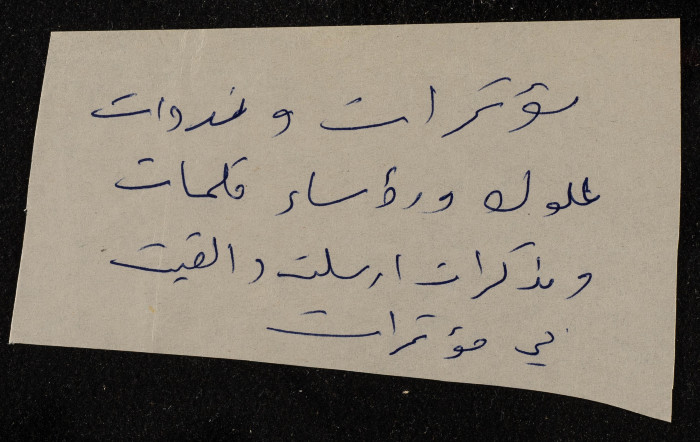 مؤتمرات و ندوات
ملوك ورؤساء كلمات
و مذكرات ارسلت و القيت
في مؤتمرات